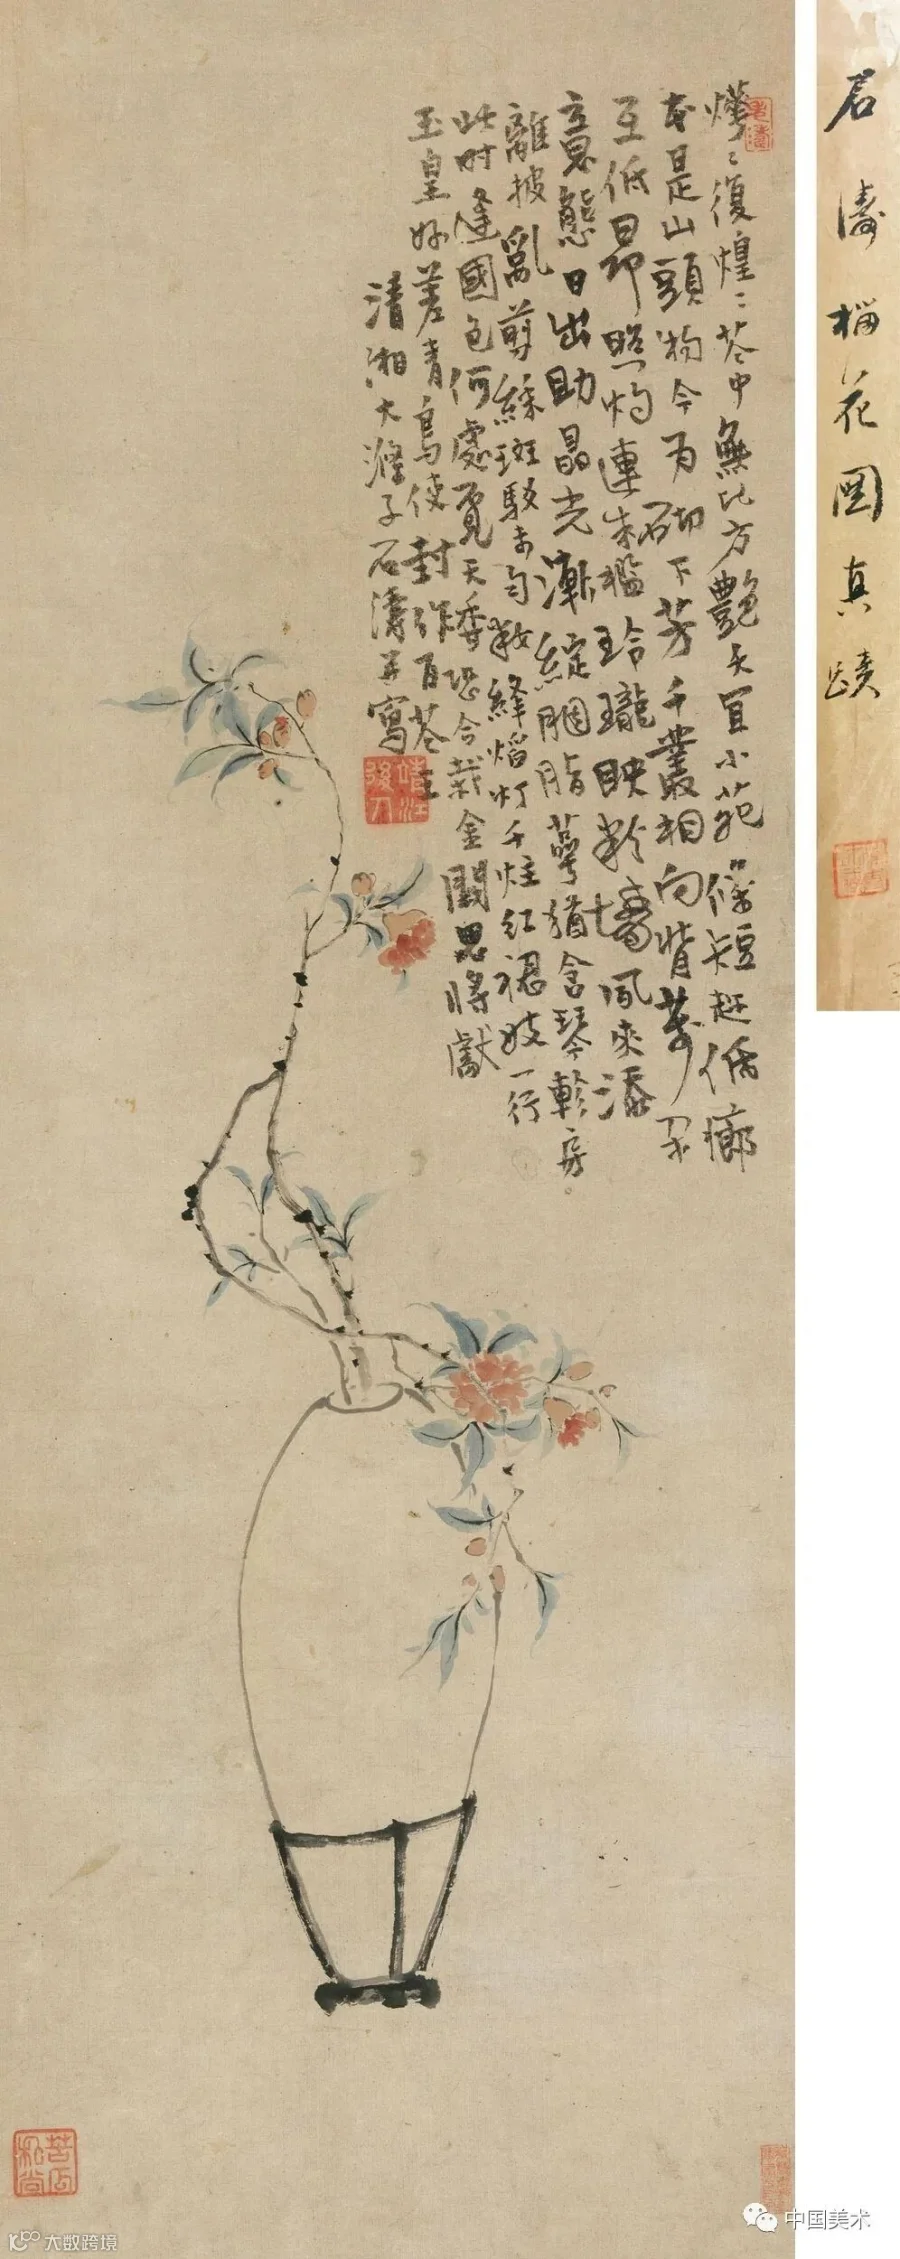 燁〻復煌〻花中無比方艷夭宜小苑條短趂低廊
本是山頭物今为砌下芳千叢相向背萬朵
互低昂照灼連朱檻玲瓏映粉墻風來添
意態日出助晶光漸綻胭脂萼猶含琴軫房
離披亂剪綵斑駁未勻粧絳焰灯千炷红裙妓一行
此时逢國色何處覓天香恐合栽金闕思將獻
玉皇好差青鳥使封作百花王
清湘大滌子石濤并寫
靖江後人
苦瓜和尚
石濤榴花圖真蹟
中国美术
大数跨境